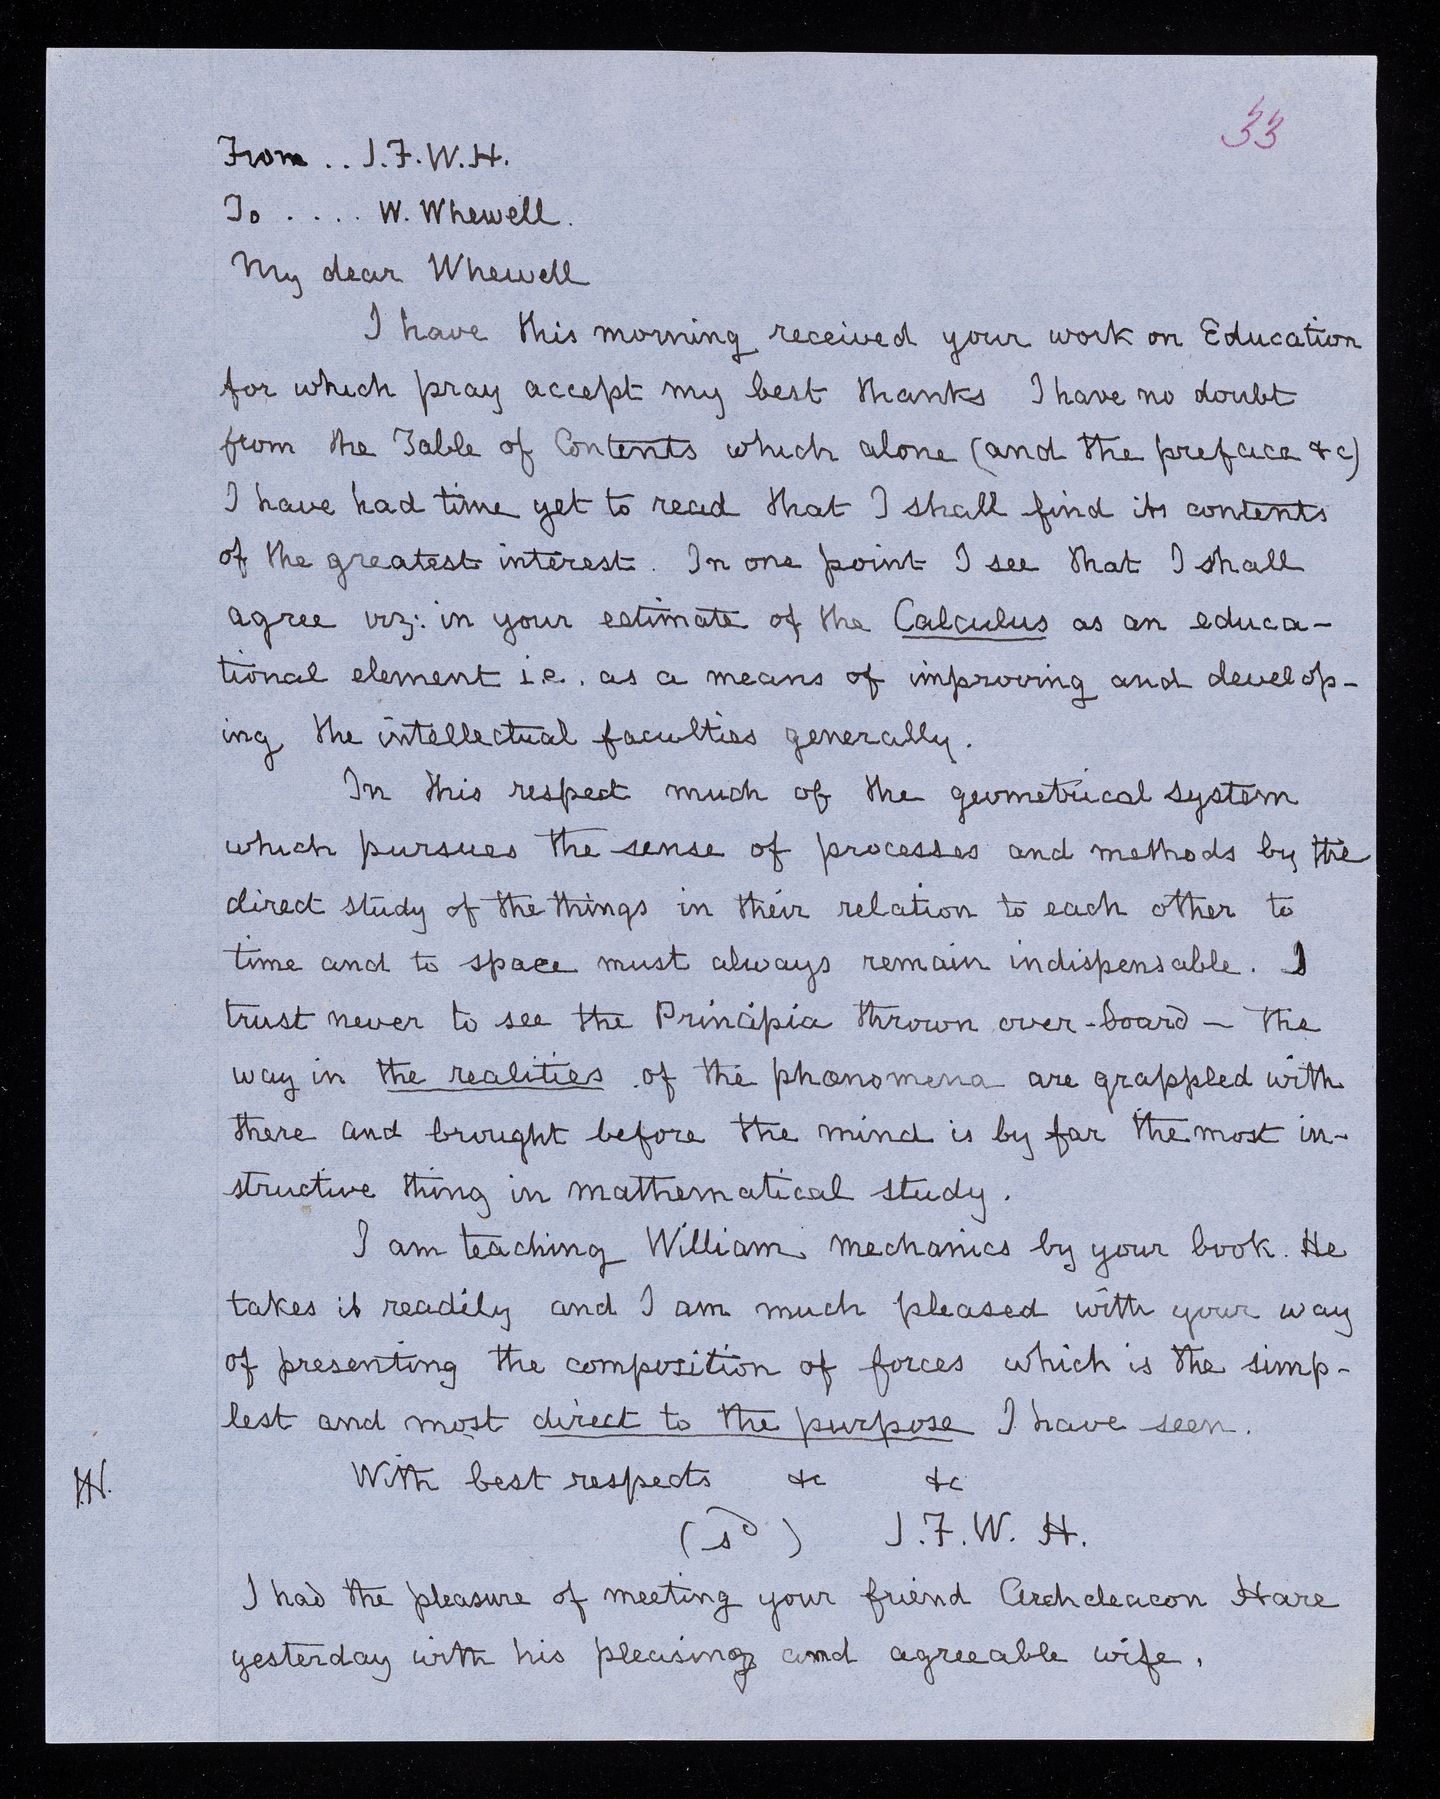 33
From .. J.F.W.H.
To .... W. Whewell.
My dear Whewell
I have this morning received your work on Education
for which pray accept my best thanks I have no doubt
from the Table of Contents which alone (and the preface &c)
I have had time yet to read that I shall find its contents
of the greatest interest. In one point I see that I shall
agree viz: in your estimate of the Calculus as an educa-
tional element i.e. as a means of improving and develop-
ing the intellectual faculties generally.
In this respect much of the geometrical system
which pursues the sense of processes and methods by the
direct study of the things in their relation to each other to
time and to space must always remain indispensable. I
trust never to see the Principia thrown over-board - the
way in the realities of the phænomena are grappled with
there and brought before the mind is by far the most in-
structive thing in mathematical study.
I am teaching William mechanics by your book. He
takes it readily and I am much pleased with your way
of presenting the composition of forces which is the simp-
lest and most direct to the purpose I have seen.
With best respects &c &c
(sd) J.F.W. H.
I had the pleasure of meeting your friend Archdeacon Hare
yesterday with his pleasing and agreeable wife.